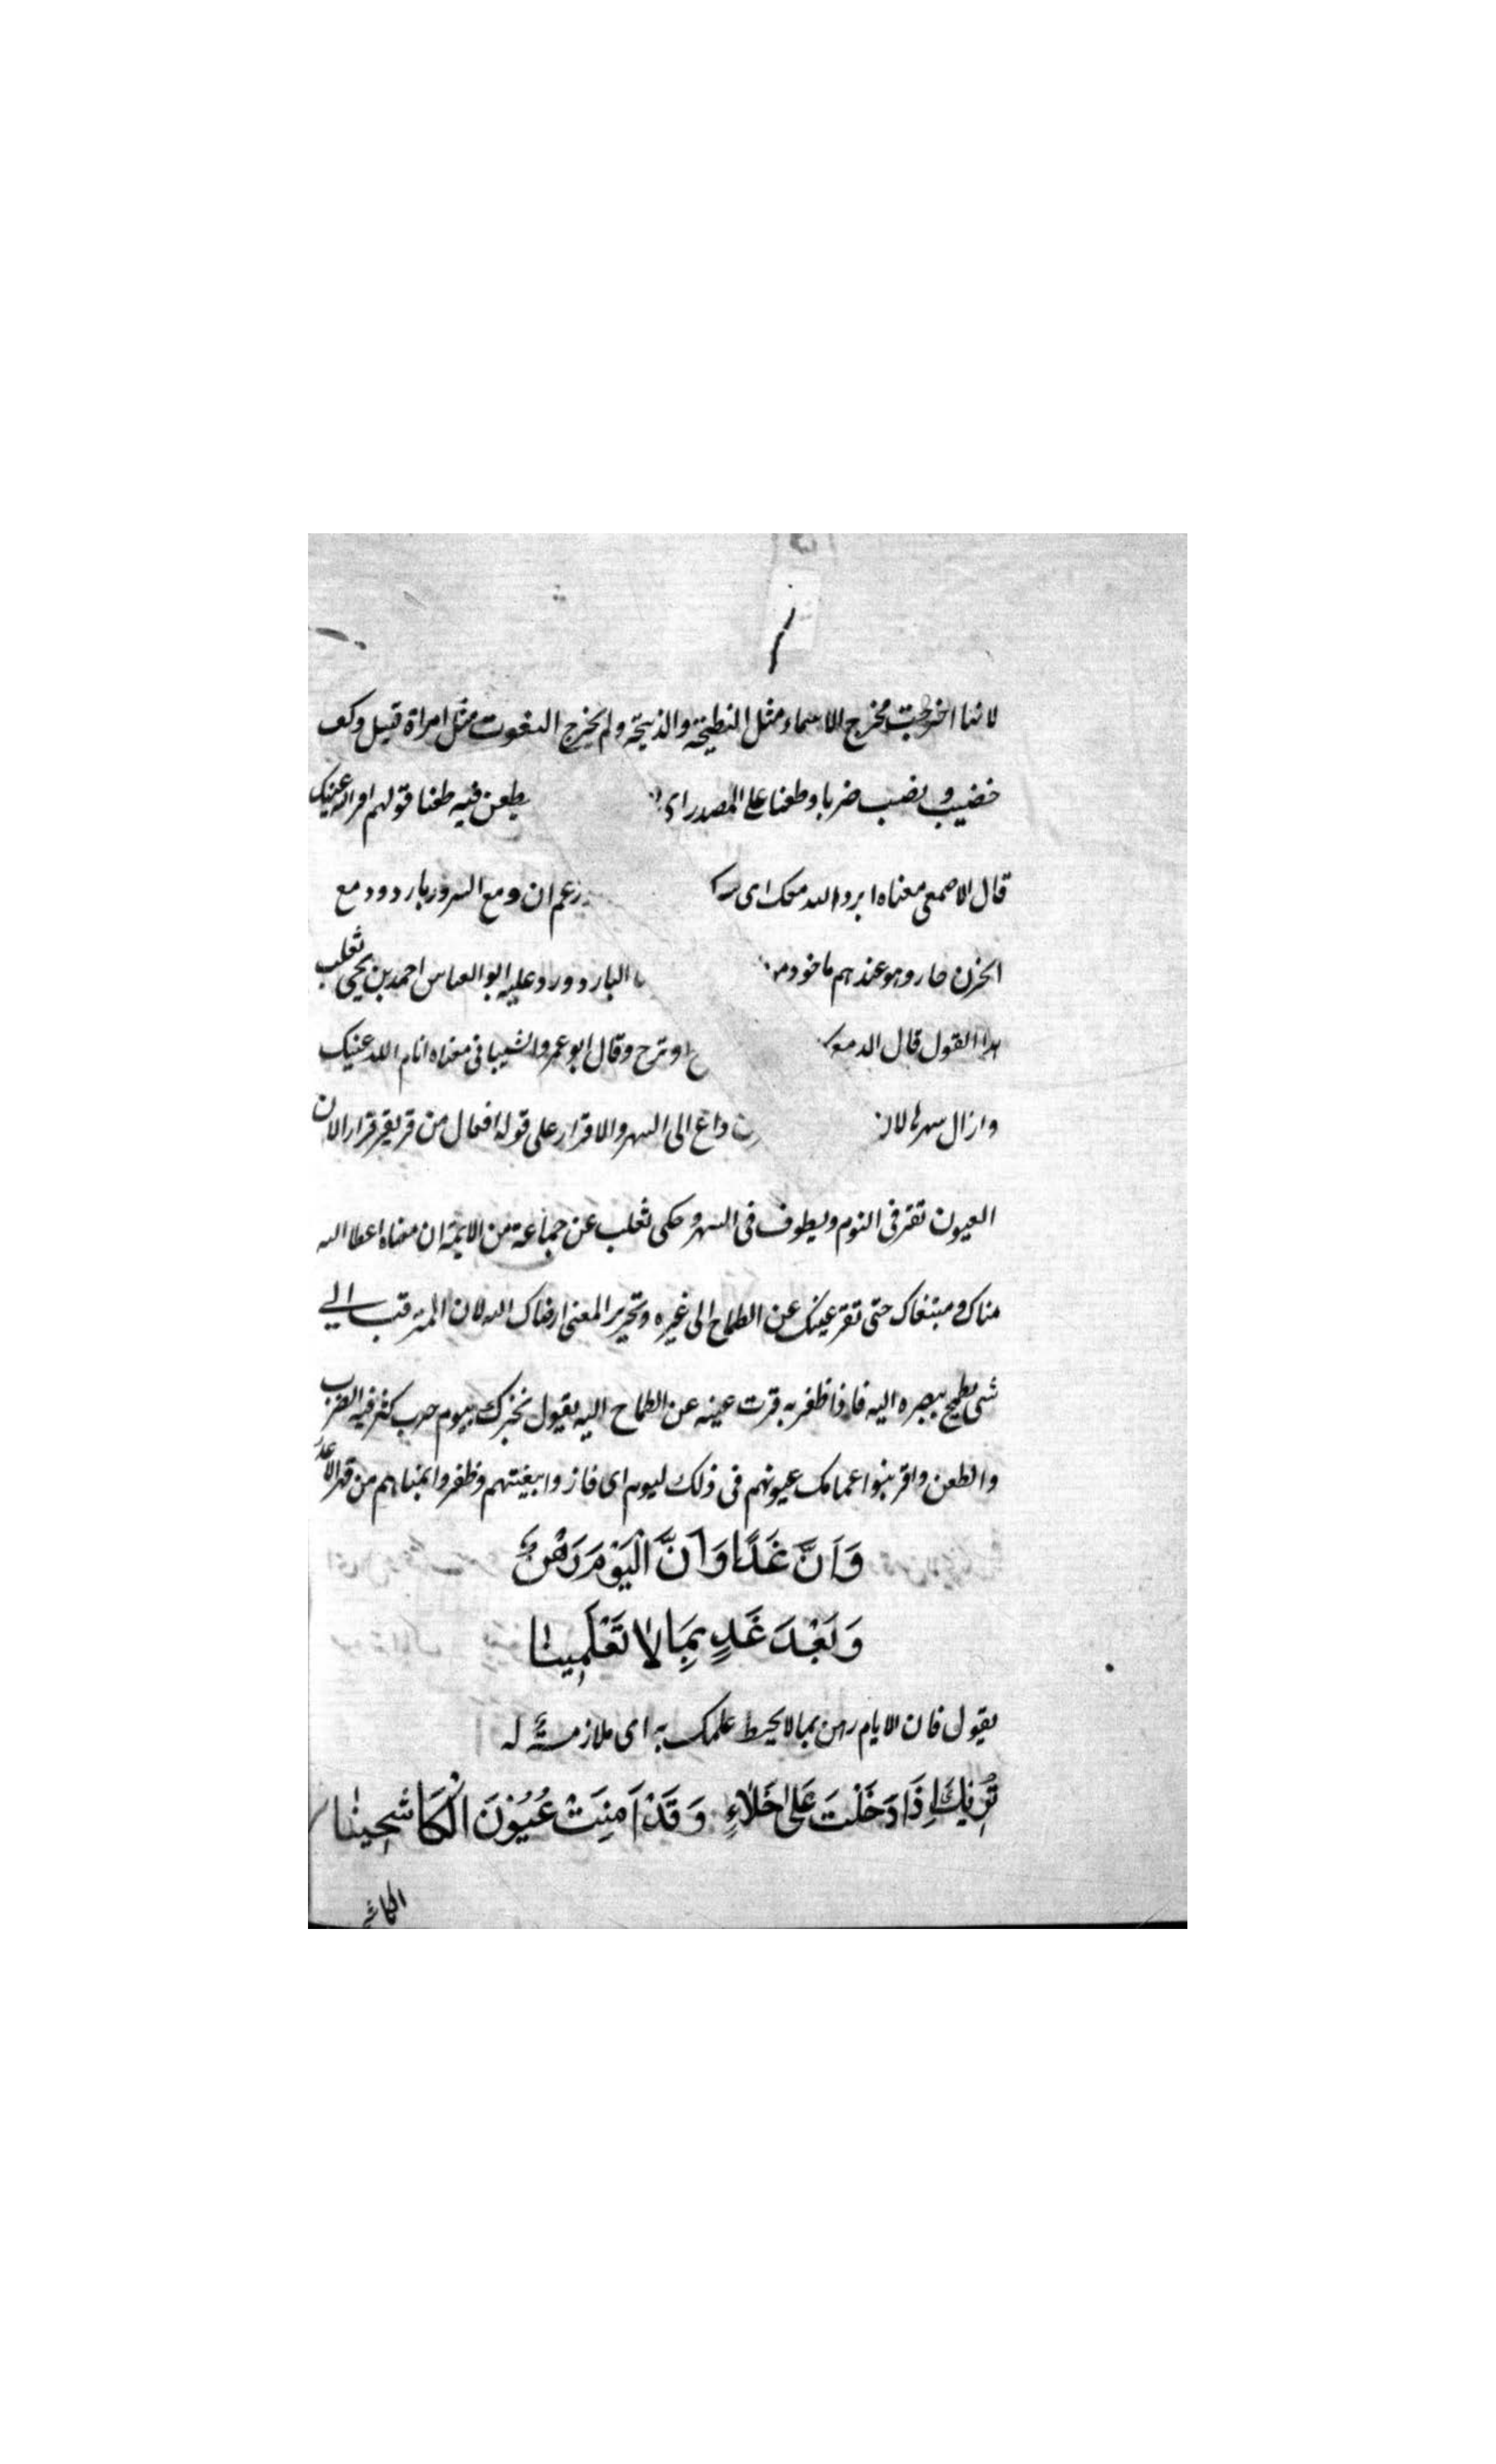 لانها اخرجت مخرج الاسماء مثل النطيحة والذبيحة ولم يخرج النعوت مثل امراة قتيل وكف
خضيب و نصب ضربا وطعنا على المصدر اى يطعن فيه طعنا قولهم اقر الله عينك
قال الاصمعى معناه ابرد الله دمعك اى زعم ان دمع السرور بارد ودمع
الحزن حار وهو عندهم ماخوذ من البارد ورد عليه ابو العباس احمد بن يحيى ثعلب
هذا القول قال الدمع او ترح وقال ابو عمرو الشيبانى معناه انام الله عينك
وازال سهرها لان داع الى السهر والاقرار على قوله افعال من قر يقر قرارا لان
العيون تقر فى النوم ويطوف فى السهر وحكى ثعلب عن جماعة من الايمة ان معناه اعطا الله
مناك و مبتغاك حتى تقر عينك عن الطماح الى غيره وتحرير المعنى ارضاك الله لان المترقب الي
شى يطمح ببصره اليه فاذا ظفر به قرت عينه عن الطماح اليه يقول نخبرك بيوم حرب كثر فيه الضرب
والطعن واقر بنوا عمامك عيونهم فى ذلك ليوم اى فازوا ببغيتهم وظفروا بمناهم من قهر الاعد
وَاَنَّ غَدًا وَاَنَّ الْيَوْمَ رَهْنٌ
وَبَعْدَ غَدٍ بِمَا لَا تَعْلَمِينَا
يقول فان الايام رهن بما لا يحيط علمك به اى ملازمة له
تُرِيْكَ اِذَا دَخَلْتَ عَلَى خَلَاءٍ وَقَدْ اَمِنَتْ عُيُوْنَ الْكَاشِحِينَا
الكاشح